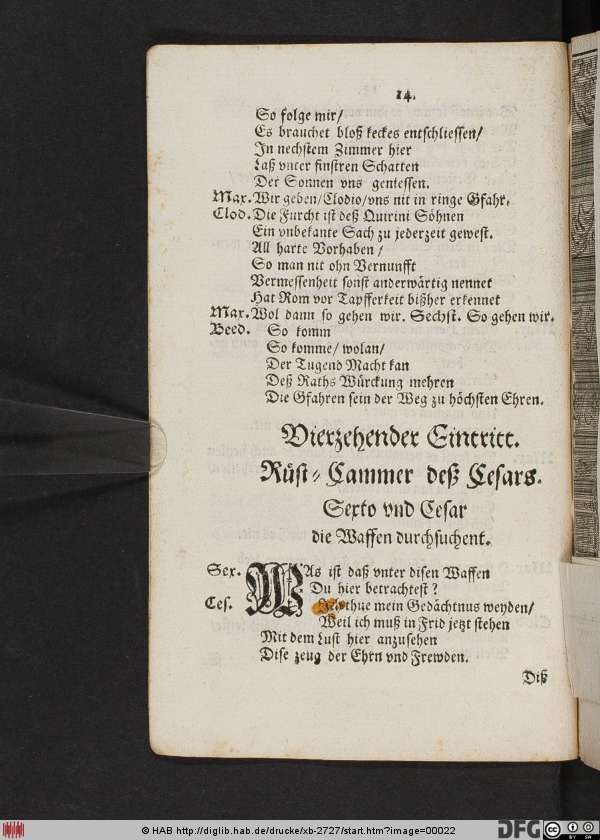 14.
So folge mir/
Es brauchet bloß keckes entschliessen/
In nechstem Zimmer hier
Laß vnter finstren Schatten
Der Sonnen vns geniessen.
Max. Wir geben/Clodio/vns nit in ringe Gfahr.
Clod. Die Furcht ist deß Quirini Söhnen
Ein vnbekante Sach zu jederzeit gewest.
All harte Vorhaben/
So man nit ohn Vernunfft
Vermessenheit sonst anderwärtig nennet
Hat Rom vor Tapfferkeit bißher erkennet
Max. Wol dann so gehen wir. Sechst. So gehen wir.
Beed. So komm
So komme/ wolan/
Der Tugend Macht kan
Deß Raths Würckung mehren
Die Gfahren sein der Weg zu höchsten Ehren.
Vierzehender Eintritt.
Rüst-Cammer deß Cesars.
Sexto vnd Cesar
die Waffen durchsuchent.
Sex. WAs ist daß vnter disen Waffen
Du hier betrachtest?
Ces. Ich thue mein Gedächtnus weyden/
Weil ich muß in Frid jetzt stehen
Mit dem Lust hier anzusehen
Dise zeug der Ehrn vnd Frewden.
Diß
© HAB http://diglib.hab.de/drucke/xb-2727/start.htm?image=00022
DFG
CC BY SA